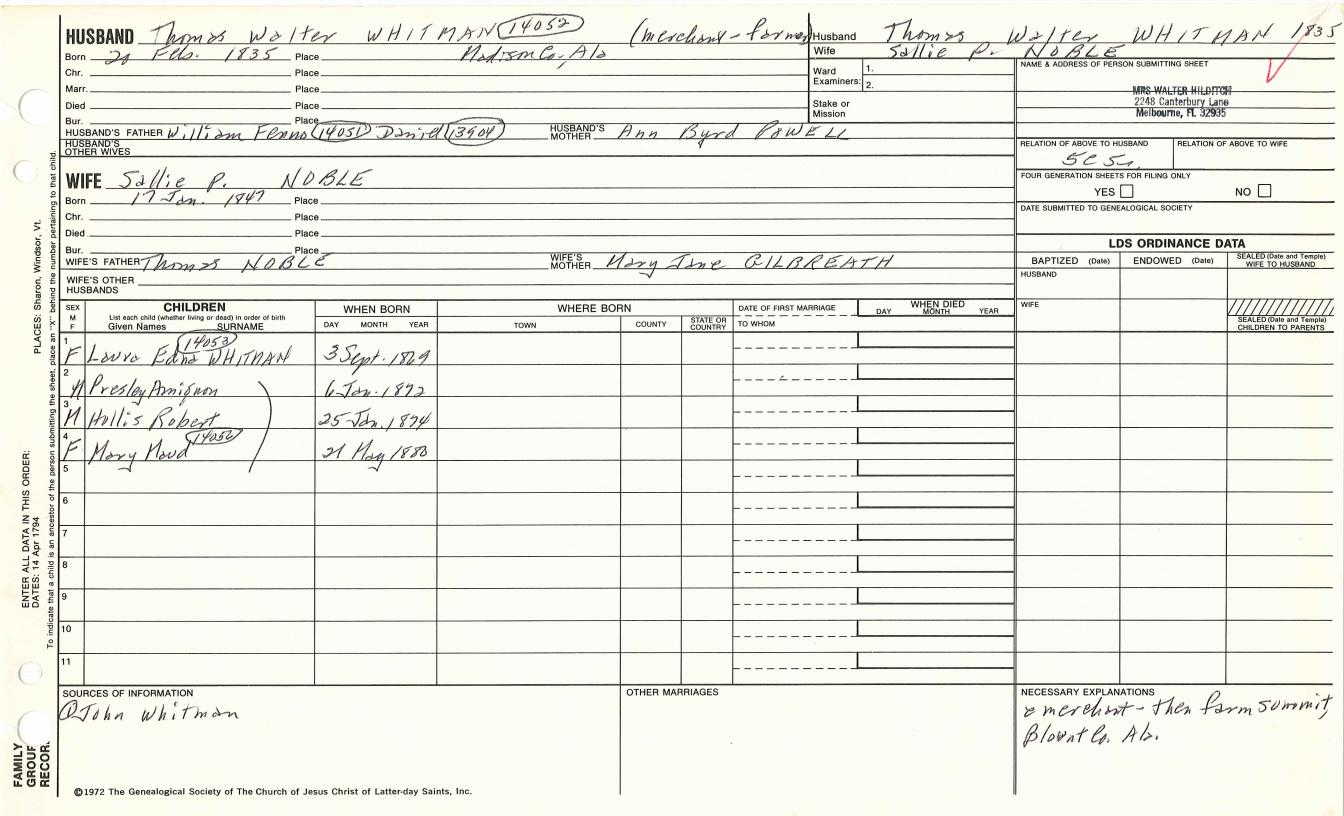 HUSBAND Thomas Walter WHITMAN 14052 (merchant-farmer)
Born 20 Feb. 1835 Place Madison Co, Ala
Chr. Place
Marr. Place
Died Place
Bur. Place
HUSBAND'S FATHER William Fenno 14051 Daniel 13904 HUSBAND'S MOTHER Ann Byrd POWELL
HUSBAND'S OTHER WIVES
Husband Thomas Walter WHITMAN 1835
Wife Sallie P. NOBLE
Ward Examiners: 1.
2.
Stake or Mission
NAME & ADDRESS OF PERSON SUBMITTING SHEET
MRS WALTER HILDITCH
2248 Canterbury Lane
Melbourne, FL 32935
RELATION OF ABOVE TO HUSBAND RELATION OF ABOVE TO WIFE
FOUR GENERATION SHEETS FOR FILING ONLY
YES NO
DATE SUBMITTED TO GENEALOGICAL SOCIETY
WIFE Sallie P. NOBLE
Born 17 Jan. 1847 Place
Chr. Place
Died Place
Bur. Place
WIFE'S FATHER Thomas NOBLE WIFE'S MOTHER Mary Jane GILBREATH
WIFE'S OTHER HUSBANDS
LDS ORDINANCE DATA
BAPTIZED (Date) ENDOWED (Date) SEALED (Date and Temple) WIFE TO HUSBAND
HUSBAND
WIFE
SEALED (Date and Temple) CHILDREN TO PARENTS
SEX M F CHILDREN WHEN BORN WHERE BORN DATE OF FIRST MARRIAGE WHEN DIED
List each child (whether living or dead) in order of birth
Given Names SURNAME DAY MONTH YEAR TOWN COUNTY STATE OR COUNTRY TO WHOM DAY MONTH YEAR
1 F Laura Edna WHITMAN 14053 3 Sept. 1869
2 M Presley Amignon 6 Jan. 1872
3 M Hollis Robert 25 Jan. 1874
4 F Mary Maud 14056 21 May 1880
5
6
7
8
9
10
11
SOURCES OF INFORMATION
① John Whitman
OTHER MARRIAGES
NECESSARY EXPLANATIONS
a merchant - then farm Summit,
Blount Co. Ala.
©1972 The Genealogical Society of The Church of Jesus Christ of Latter-day Saints, Inc.
ENTER ALL DATA IN THIS ORDER:
DATES: 14 Apr 1794
PLACES: Sharon, Windsor, Vt.
To indicate that a child is an ancestor of the person submitting the sheet, place an "X" behind the number pertaining to that child.
FAMILY
GROUP
RECOR